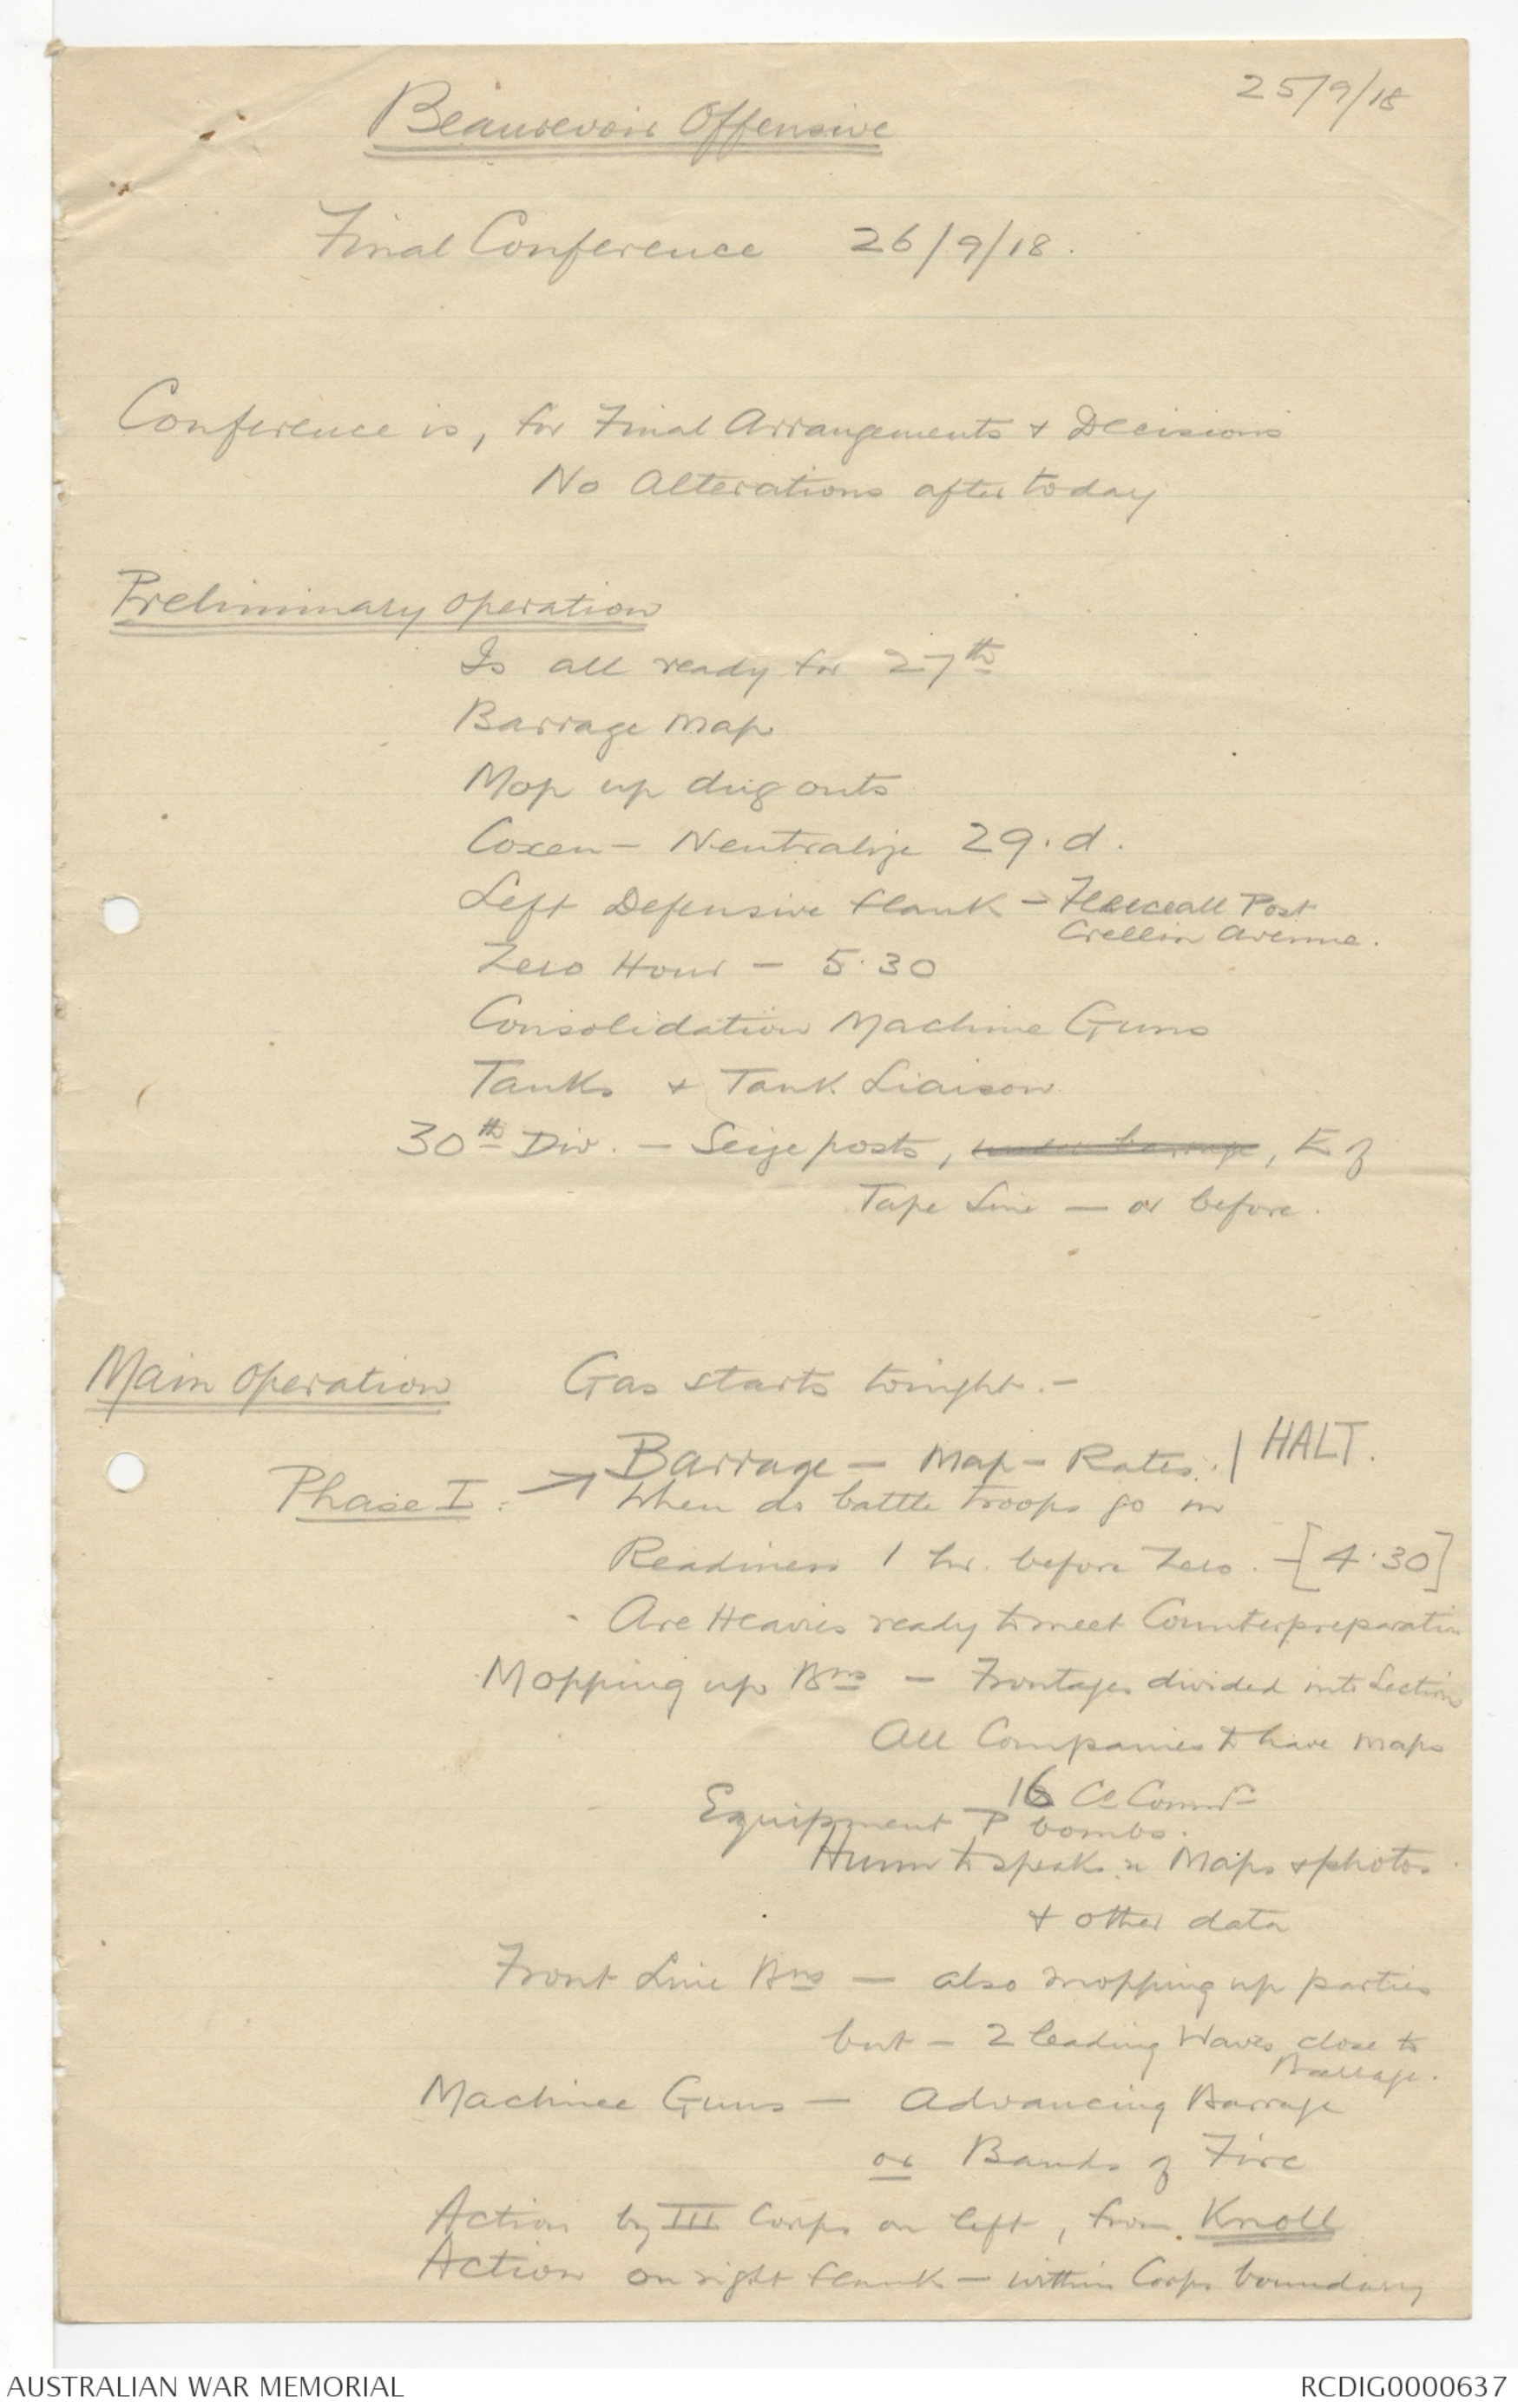 25/9/18
Beaurevoir Offensive
Final Conference 26/9/18.
Conference is, for Final Arrangements & Decisions
No Alterations after today
Preliminary Operation
Is all ready for 27th
Barrage Map
Mop up dug outs
Coxen - Neutralize 29.d.
Left Defensive flank - Post
Crellin Avenue.
Zero Hour - 5.30
Consolidation Machine Guns
Tanks & Tank Liaison
30th Div. - Seize posts, under barrage, E of
Tape Line - or before.
Main Operation Gas starts tonight. -
Barrage - Map - Rates. | HALT.
Phase I. → When do battle troops go in
Readiness 1 hr. before Zero. - [4.30]
Are Heavies ready to meet Counterpreparation
Mopping up Bns - Frontages divided into Sections
All Companies to have maps
16 Co Comdr
Equipment P bombs.
Hunn to speak re Maps & photos
& other data
Front Line Bns - also mopping up parties
but - 2 leading Waves close to
Barrage.
Machine Guns - Advancing Barrage
or Bands of Fire
Action by III Corps on left, from Knoll
Action on right flank - within Corps boundary
AUSTRALIAN WAR MEMORIAL
RCDIG0000637